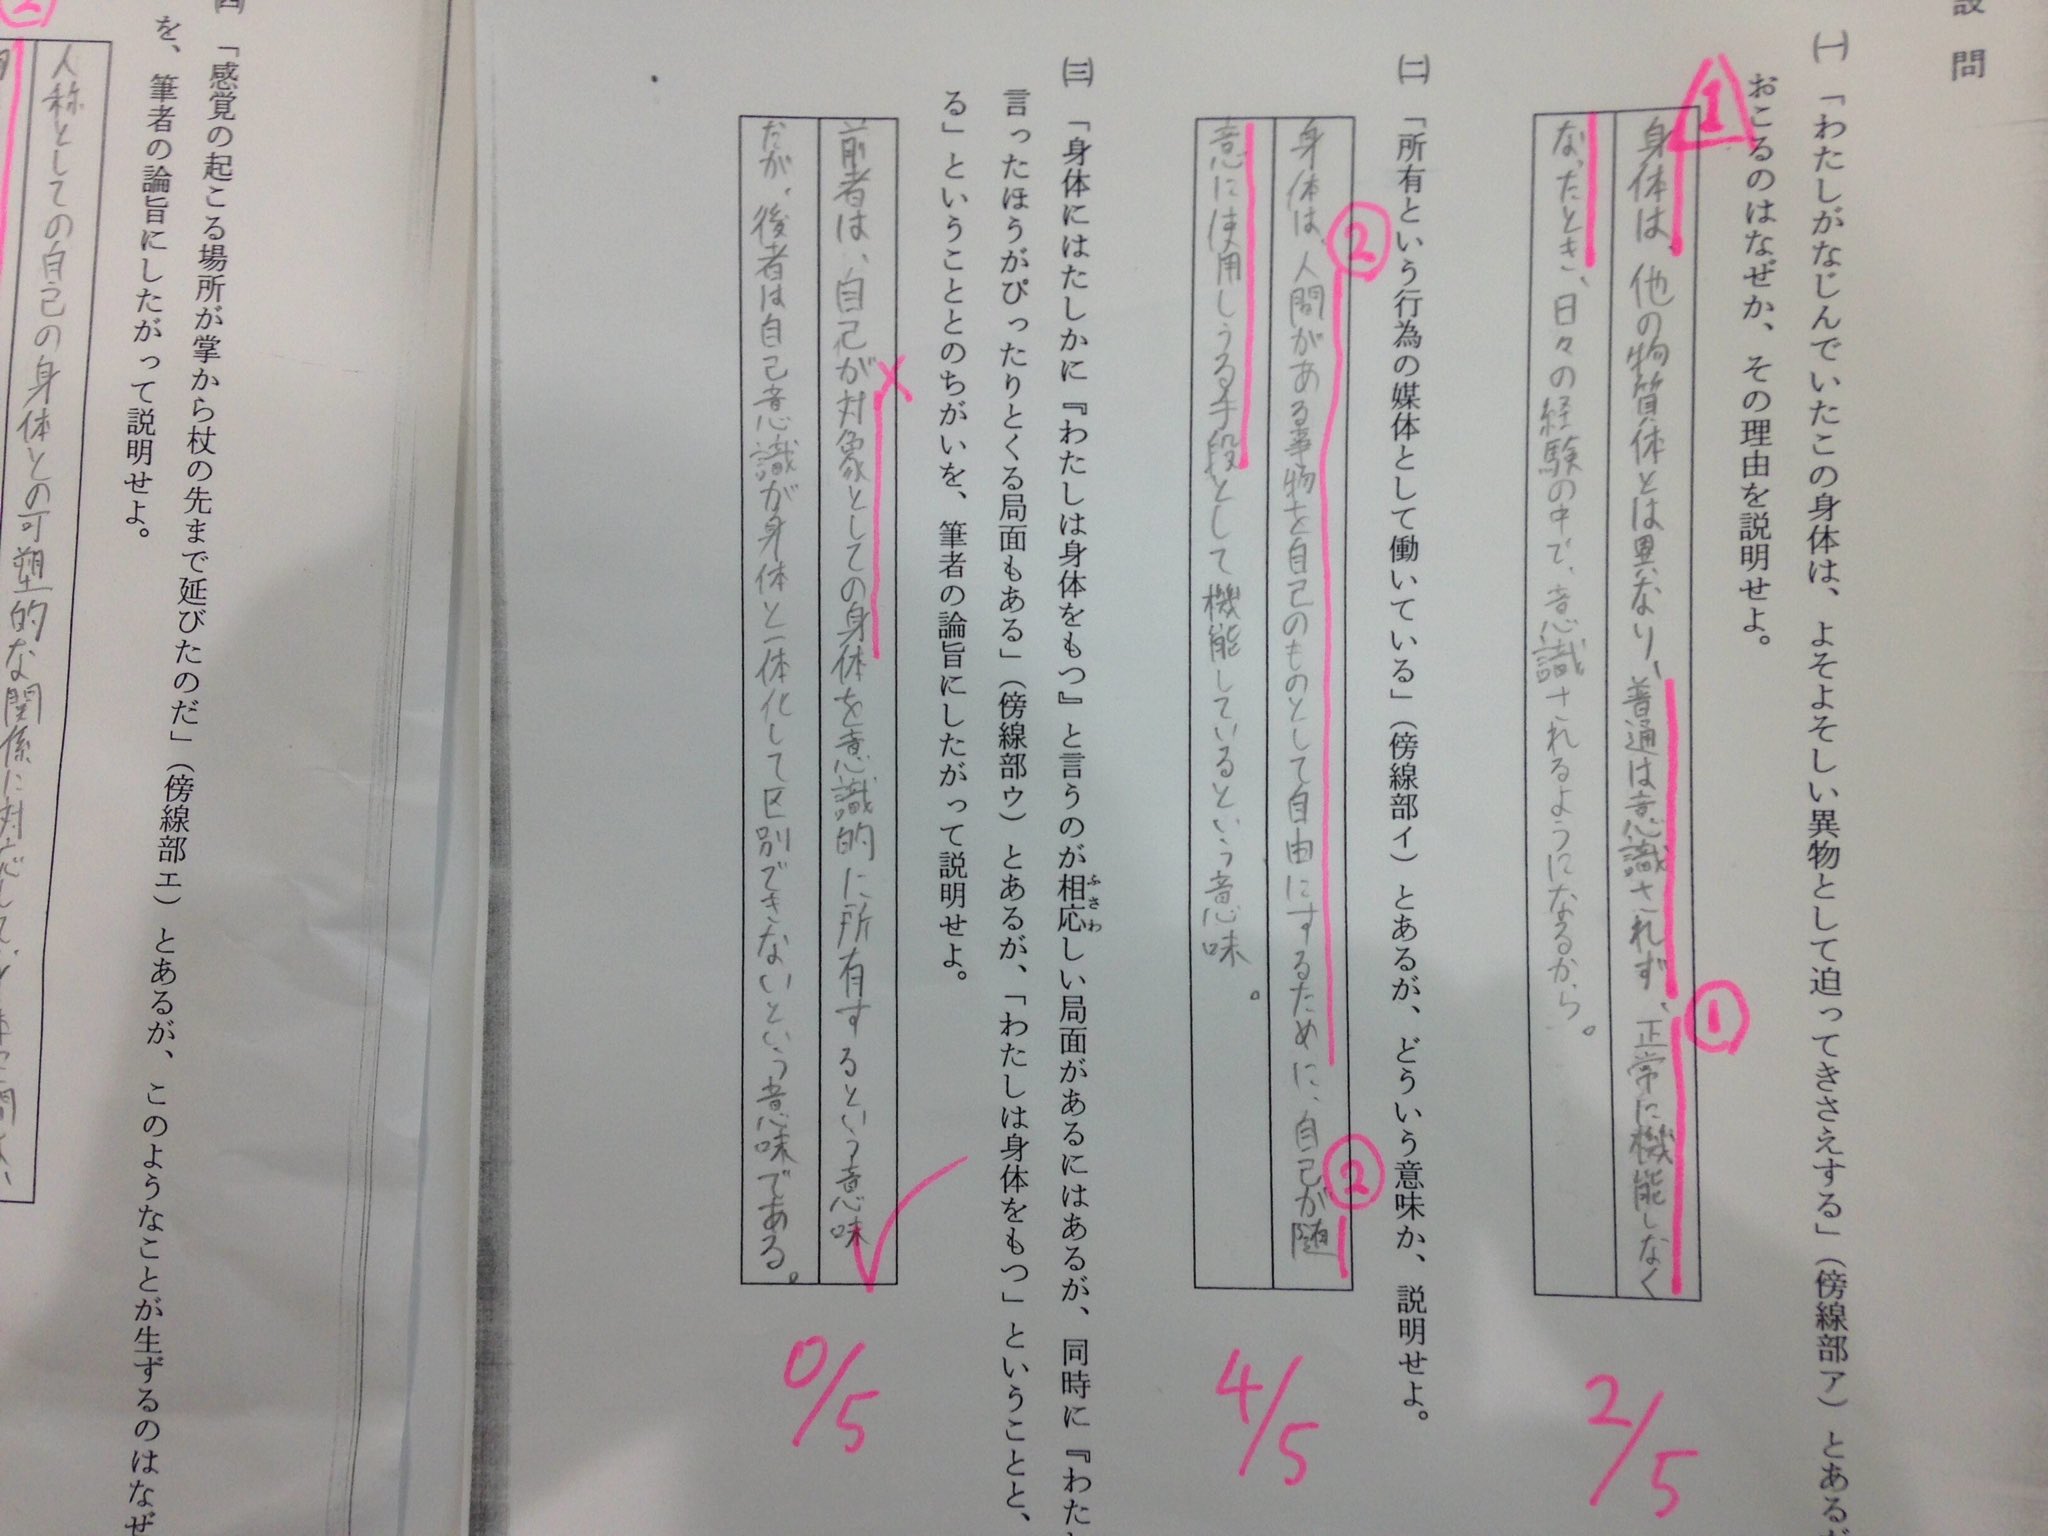 設問
㈠ 「わたしがなじんでいたこの身体は、よそよそしい異物として迫ってきさえする」（傍線部ア）とあるが
おこるのはなぜか、その理由を説明せよ。
1
身体は、他の物質体とは異なり、普通は意識されず、正常に機能しなく
①
なったとき、日々の経験の中で、意識されるようになるから。
2/5
㈡ 「所有という行為の媒体として働いている」（傍線部イ）とあるが、どういう意味か、説明せよ。
②
身体は、人間がある事物を自己のものとして自由にするために、自己が随
②
意に使用しうる手段として機能しているという意味。
4/5
㈢ 「身体にはたしかに『わたしは身体をもつ』と言うのが相応しい局面があるにはあるが、同時に『わた
ふさわ
言ったほうがぴったりとくる局面もある」（傍線部ウ）とあるが、「わたしは身体をもつ」ということと、
る」ということとのちがいを、筆者の論旨にしたがって説明せよ。
前者は、自己が対象としての身体を意識的に所有するという意味
だが、後者は自己意識が身体と一体化して区別できないという意味である。
0/5
㈣ 「感覚の起こる場所が掌から杖の先まで延びたのだ」（傍線部エ）とあるが、このようなことが生ずるのはなぜ
を、筆者の論旨にしたがって説明せよ。
②
人称としての自己の身体との可塑的な関係に対応して、